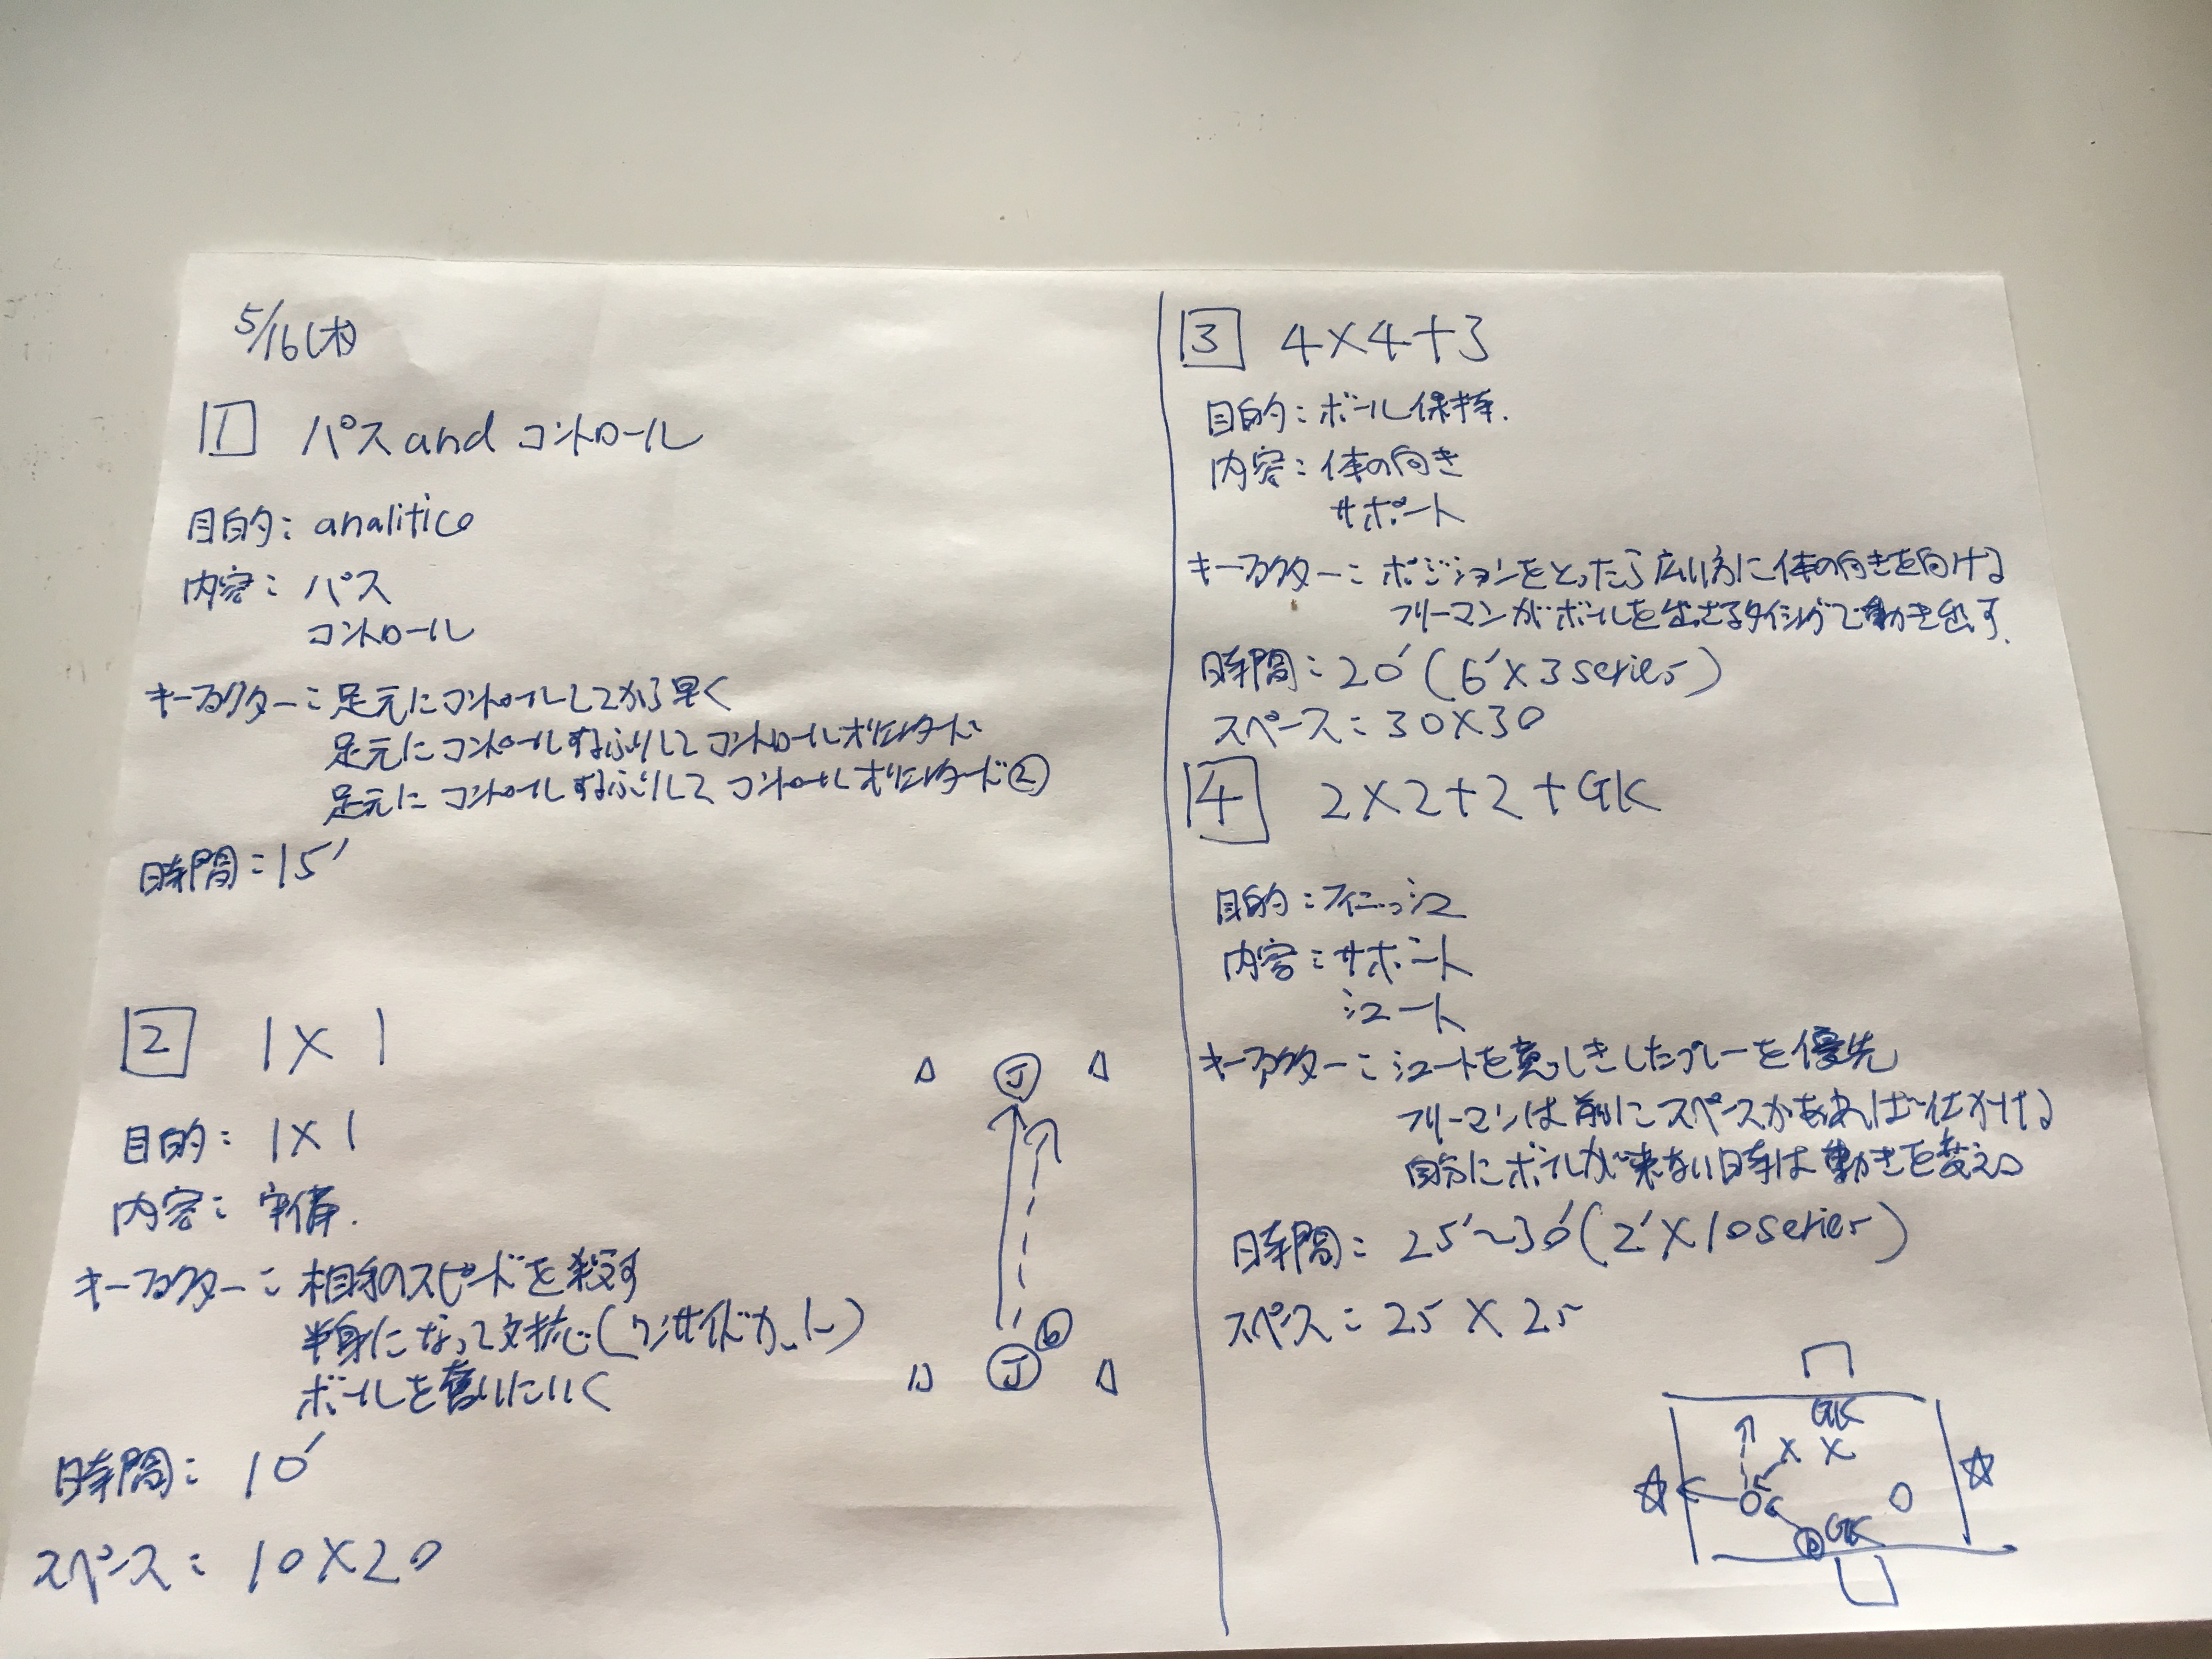 5/16(木)
1 パス and コントロール
目的: analitico
内容: パス
コントロール
キーファクター: 足元にコントロールしてから早く
足元にコントロールするふりしてコントロールオリエンタード
足元にコントロールするふりしてコントロールオリエンタード②
時間: 15'
2 1×1
目的: 1×1
内容: 守備.
キーファクター: 相手のスピードを殺す
半身になって対抗(ワンサイドカット)
ボールを奪いにいく
時間: 10'
スペース: 10×20
J
J
b
3 4×4+3
目的: ボール保持.
内容: 体の向き
サポート
キーファクター: ポジションをとったら広い方に体の向きを向ける
フリーマンがボールを出せるタイミングで動き出す.
時間: 20'(6'×3series)
スペース: 30×30
4 2×2+2+GK
目的: フィニッシュ
内容: サポート
シュート
キーファクター: シュートを意しきしたプレーを優先
フリーマンは前にスペースがあれば仕かける
自分にボールが来ない時は動きを変える
時間: 25'~30'(2'×10series)
スペース: 25×25
GK
X X
O O
b GK